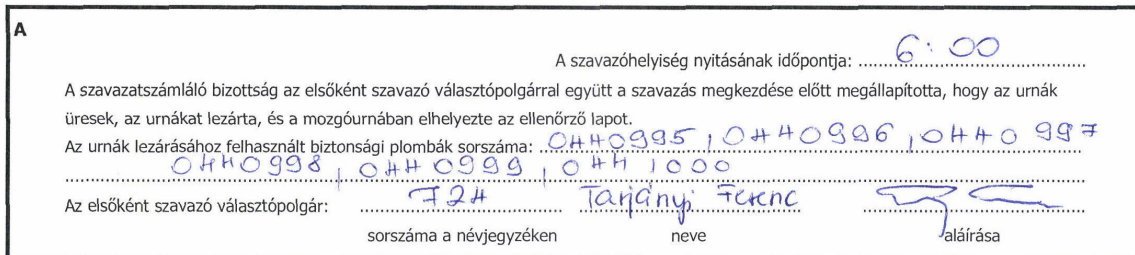 A
A szavazóhelyiség nyitásának időpontja: 6:00
A szavazatszámláló bizottság az elsőként szavazó választópolgárral együtt a szavazás megkezdése előtt megállapította, hogy az urnák
üresek, az urnákat lezárta, és a mozgóurnában elhelyezte az ellenőrző lapot.
Az urnák lezárásához felhasznált biztonsági plombák sorszáma: 0440995, 0440996, 0440997
0440998, 0440999, 0441000
Az elsőként szavazó választópolgár: 724 Tarjányi Ferenc
sorszáma a névjegyzéken neve aláírása